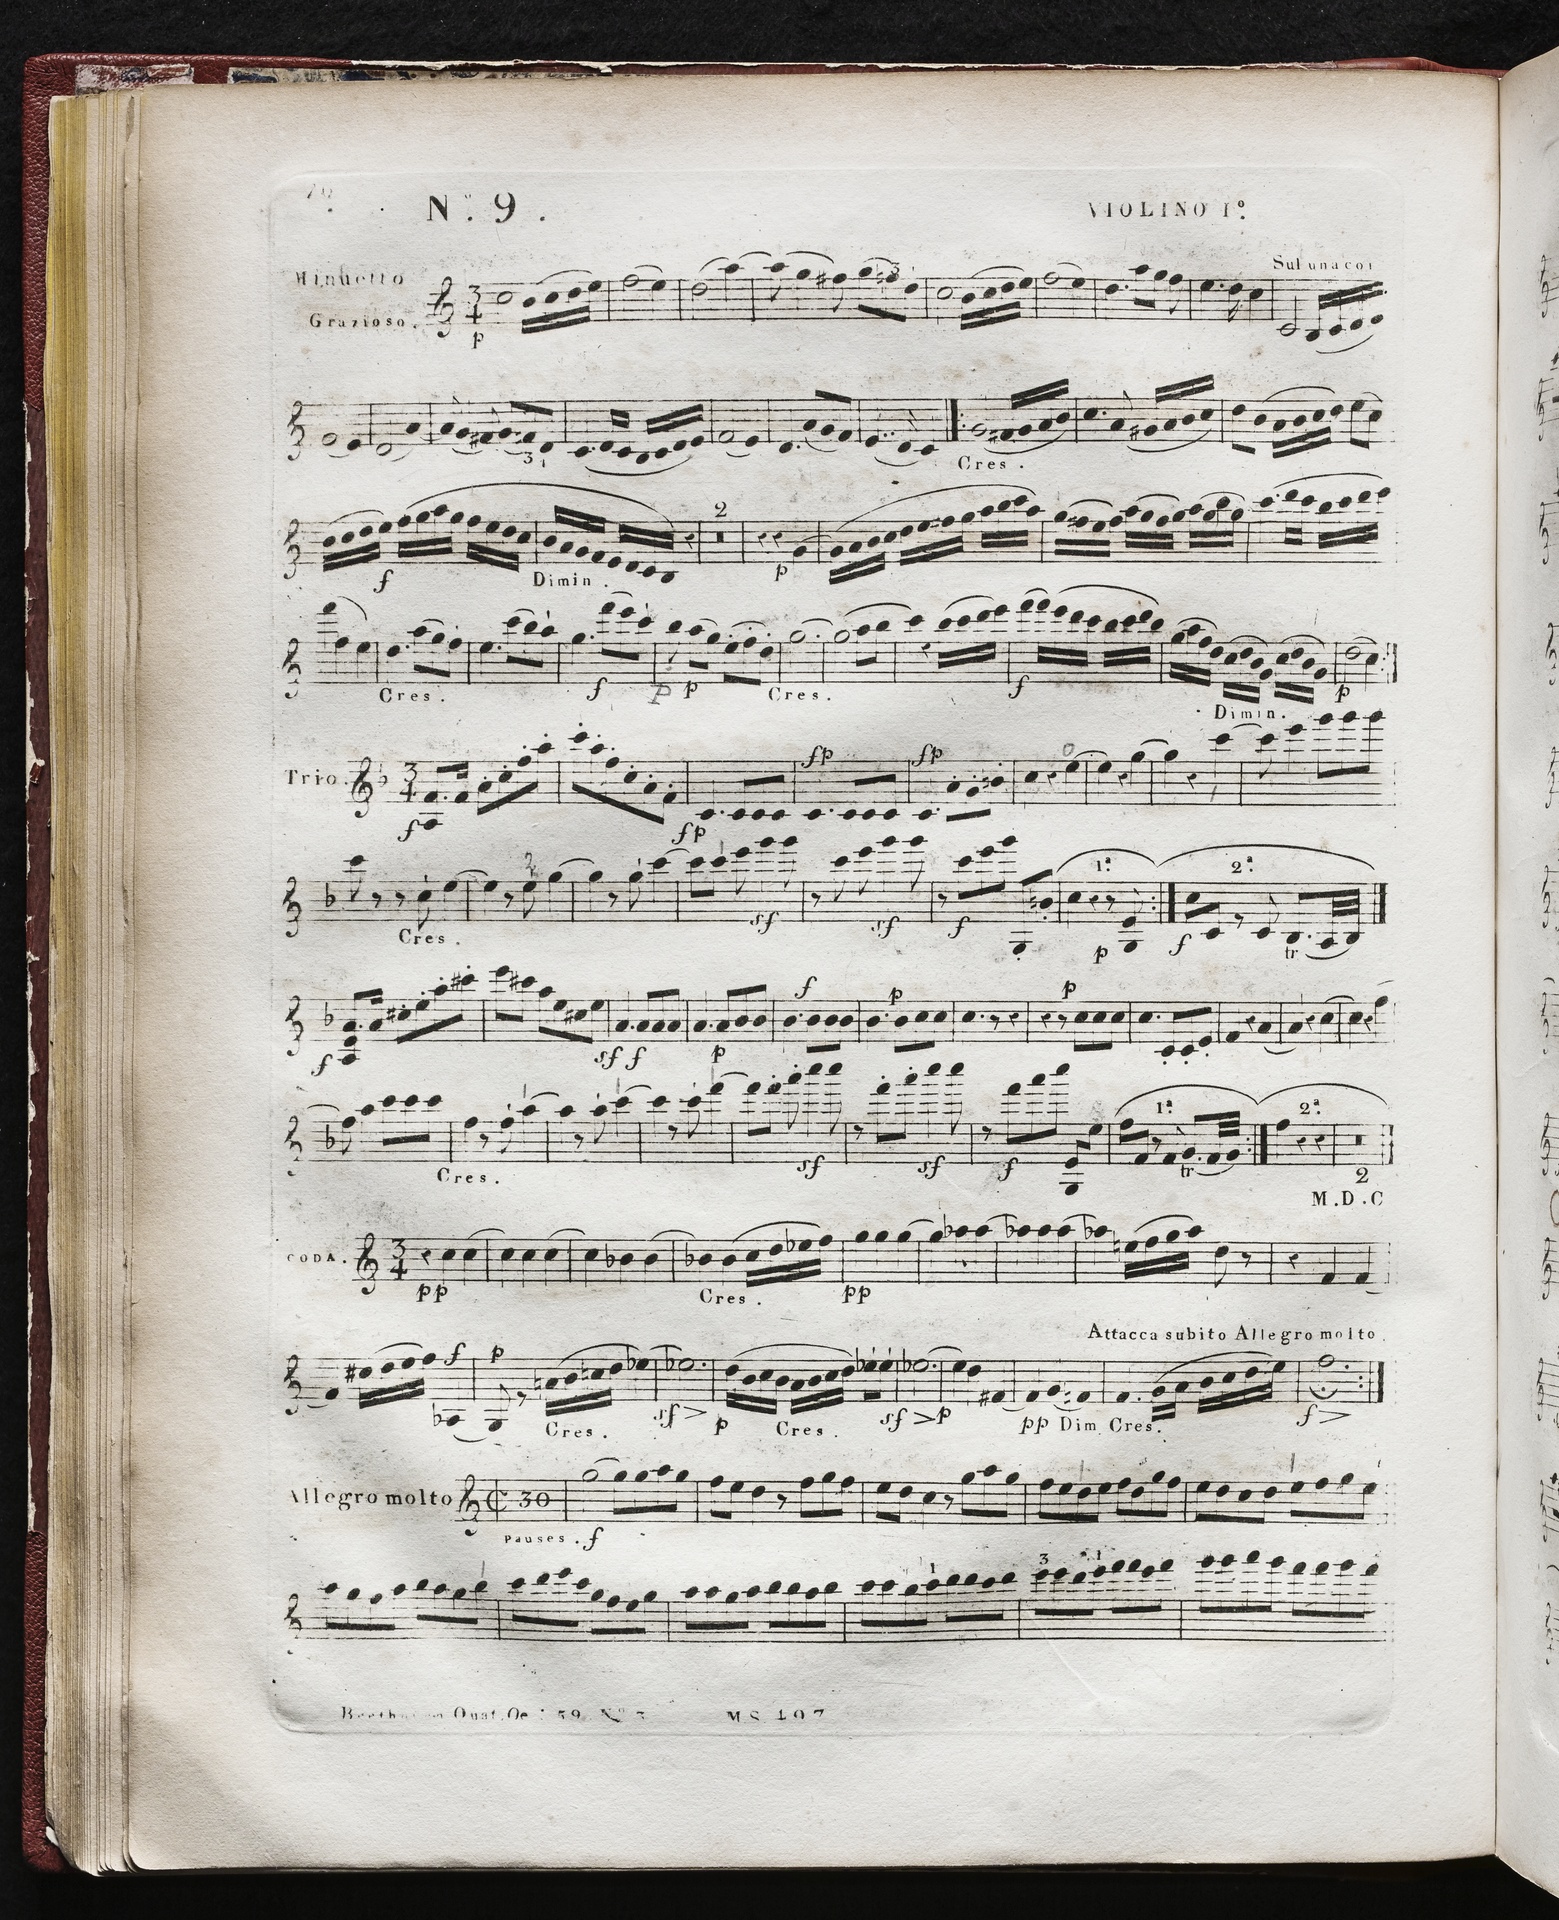 Nº. 9.
VIOLINO Iº.
Minuetto
Grazioso.
Sul una cor
3 4
p
3
3 1
Cres.
2
f Dimin. p
Cres. f p p Cres. f Dimin. p
Trio. 3 4
f fp fp fp
Cres. sf sf f 1ª. p 2ª. f tr
f sf f p f p p
Cres. sf sf f 1ª. tr 2ª. 2
M.D.C
CODA. 3 4
pp Cres. pp
Attacca subito Allegro molto.
f p Cres. sf p Cres. sf p pp Dim. Cres. f
Allegro molto 30
Pauses. f
1 3 1
Quat. Oe. 59 Nº 3